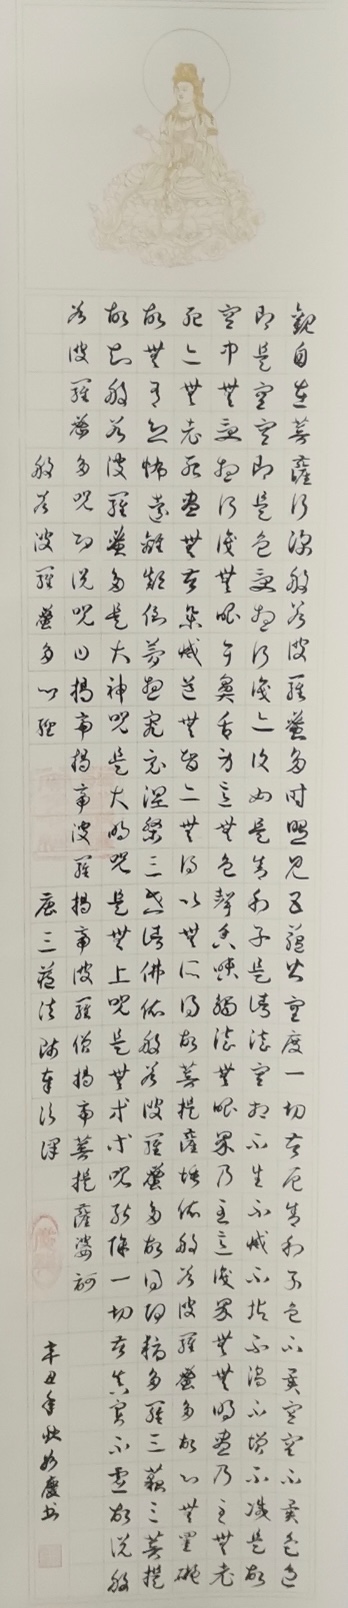 觀自在菩薩行深般若波羅蜜多時照見五蘊皆空度一切苦厄舍利子色不異空空不異色色
即是空空即是色受想行識亦復如是舍利子是諸法空相不生不滅不垢不淨不增不減是故
空中無受想行識無眼耳鼻舌身意無色聲香味觸法無眼界乃至意識界無無明盡乃至無老
死亦無老死盡無苦集滅道無智亦無得以無所得故菩提薩埵依般若波羅蜜多故心無罣礙
故無有恐怖遠離顛倒夢想究竟涅槃三世諸佛依般若波羅蜜多故得阿耨多羅三藐三菩提
故知般若波羅蜜多是大神咒是大明咒是無上咒是無等等咒能除一切苦真實不虛故說般
若波羅蜜多咒即說咒曰揭帝揭帝波羅揭帝波羅僧揭帝菩提薩婆訶
般若波羅蜜多心經
唐三藏法師奉詔譯
辛丑年秋